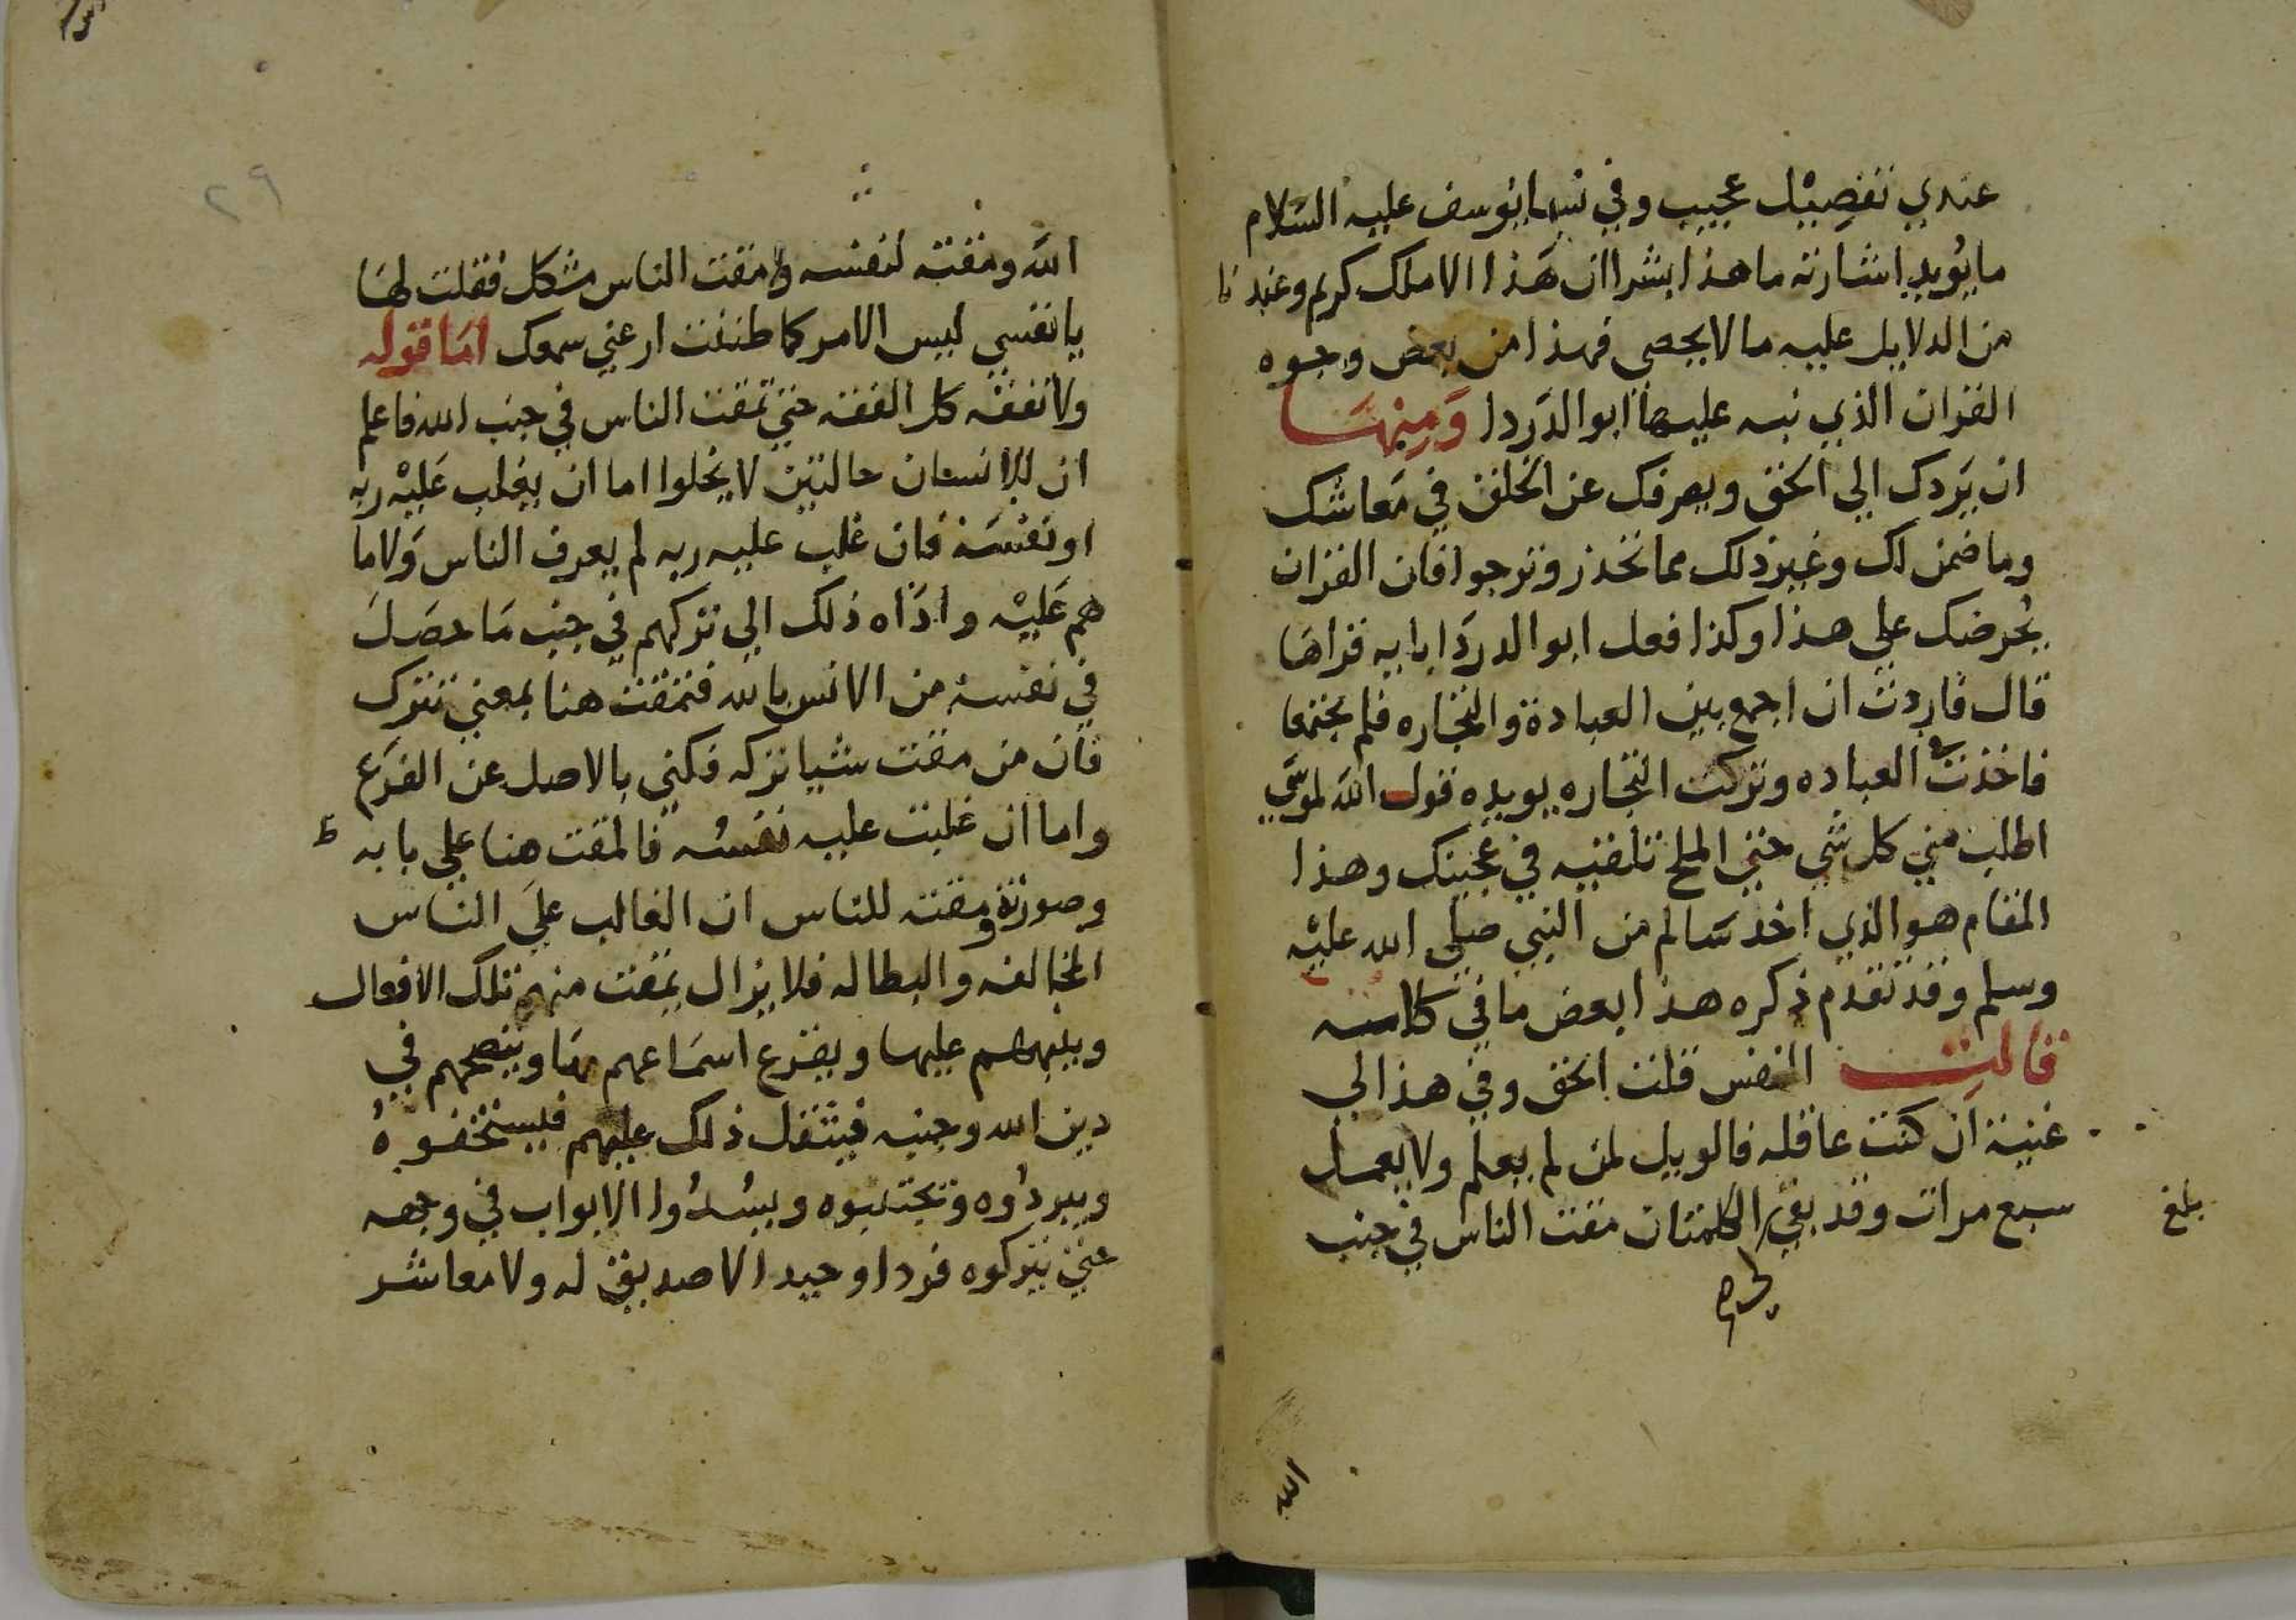 عندي تفصيل عجيب وفي نسا يوسف عليه السلام
ما يويد اشارته ما هذا بشرا ان هذا الا ملك كريم وعندنا
من الدلايل عليه ما لا يحصى فهذا من بعض وجوه
القران الذي نبه عليها ابو الدردا ومنها
ان يردك الي الحق ويصرفك عن الخلق في معاشك
وما ضمن لك وغير ذلك مما تحذر وترجوا فان القران
يحرضك علي هذا وكذا فعل ابو الدردا باية قراها
قال فاردت ان اجمع بين العبادة والتجاره فلم يجتمعا
فاخذت العباده وتركت التجاره يويده قول الله لموسى
اطلب مني كل شي حتي الملح تلقيه في عجينك وهذا
المقام هو الذي اخذ سالم من النبي صلى الله عليه
وسلم وقد تقدم ذكره هذا بعض ما في كلامه
قالت النفس قلت الحق وفي هذا لي
غنية ان كنت عاقله فالويل لمن لم يعلم ولا يعمل
سبع مرات وقد بقي الكلمتان مقت الناس في جنب
لي
بلغ
الله
٢٩
الله ومقته لنفسه ولا مقت الناس مشكل فقلت لها
يا نفسي ليس الامر كما ظننت ارعني سمعك اما قوله
ولا تفقه كل الفقه حتي تمقت الناس في جنب الله فاعلم
ان للانسان حالتين لا يخلوا اما ان يغلب عليه ربه
او نفسه فان غلب عليه ربه لم يعرف الناس ولا ما
هم عليه واداه ذلك الي تركهم في جنب ما حصل
في نفسه من الانس بالله فتمقت هنا بمعني تترك
فان من مقت شيا تركه فكني بالاصل عن الفرع
واما ان غلبت عليه نفسه فالمقت هنا علي بابه
وصورة مقته للناس ان الغالب علي الناس
المخالفه والبطاله فلا يزال يمقت منهم تلك الافعال
وينبههم عليها ويقرع اسماعهم بها وينصحهم في
دين الله وجنبه فيثقل ذلك عليهم فيستخفوه
ويبردوه وتجتنبوه ويسدوا الابواب في وجهه
حتي يتركوه فردا وحيدا لا صديق له ولا معاشر